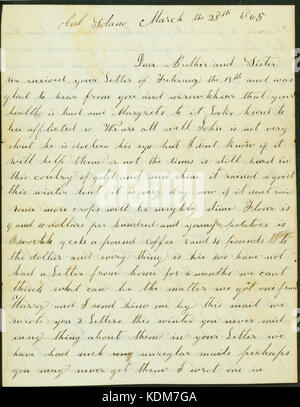 Cal Solano March the 28th 1865
Dear Brother and Sister
we received your Letter of February the 13th and was
glad to hear from you and sorrow that your
health is bad and Margrets to it Looks hard to
be afflicted so We are all well John is not very
stout he is doctrin his eys but I dont know if it
will help them or not the times is still hard in
this country of gold and sun shine it rained a good
this winter but it is very dry now if it dont rain
some more crops will be mighty slim Flour is
9 and 10 dollars per hundred and young potatoes is
5 cents a pound coffee and 4 pounds
to the dollar and every thing is hie we have not
had a Letter from home for 6 months we cant
think what can be the matter we got one from
Harry and I send him one by this mail we
wrote you 2 Letters this winter you never said
any thing about them in your Letter we
have had such unreglar mails perhaps
you may never get them I wrot one in
alamy
Image ID: KDM7GA
www.alamy.com